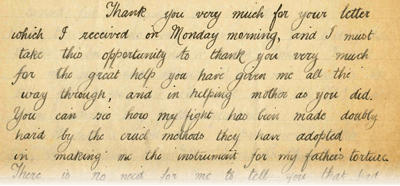 Thank you very much for your letter
which I received on Monday morning, and I must
take this opportunity to thank you very much
for the great help you have given me all the
way through, and in helping mother as you did.
You can see how my fight has been made doubly
hard by the cruel methods they have adopted
in making me the instrument for my father's torture.
There is no need for me to tell you that